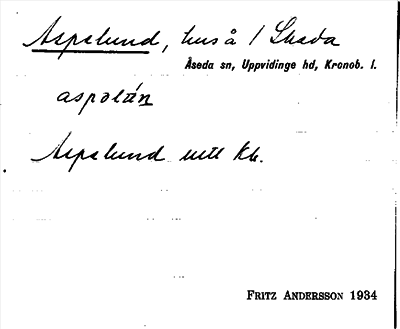 Aspelund, hus å 1 Skeda
Åseda sn, Uppvidinge hd, Kronob. l.
aspəlún
Aspelund utt kb.
FRITZ ANDERSSON 1934